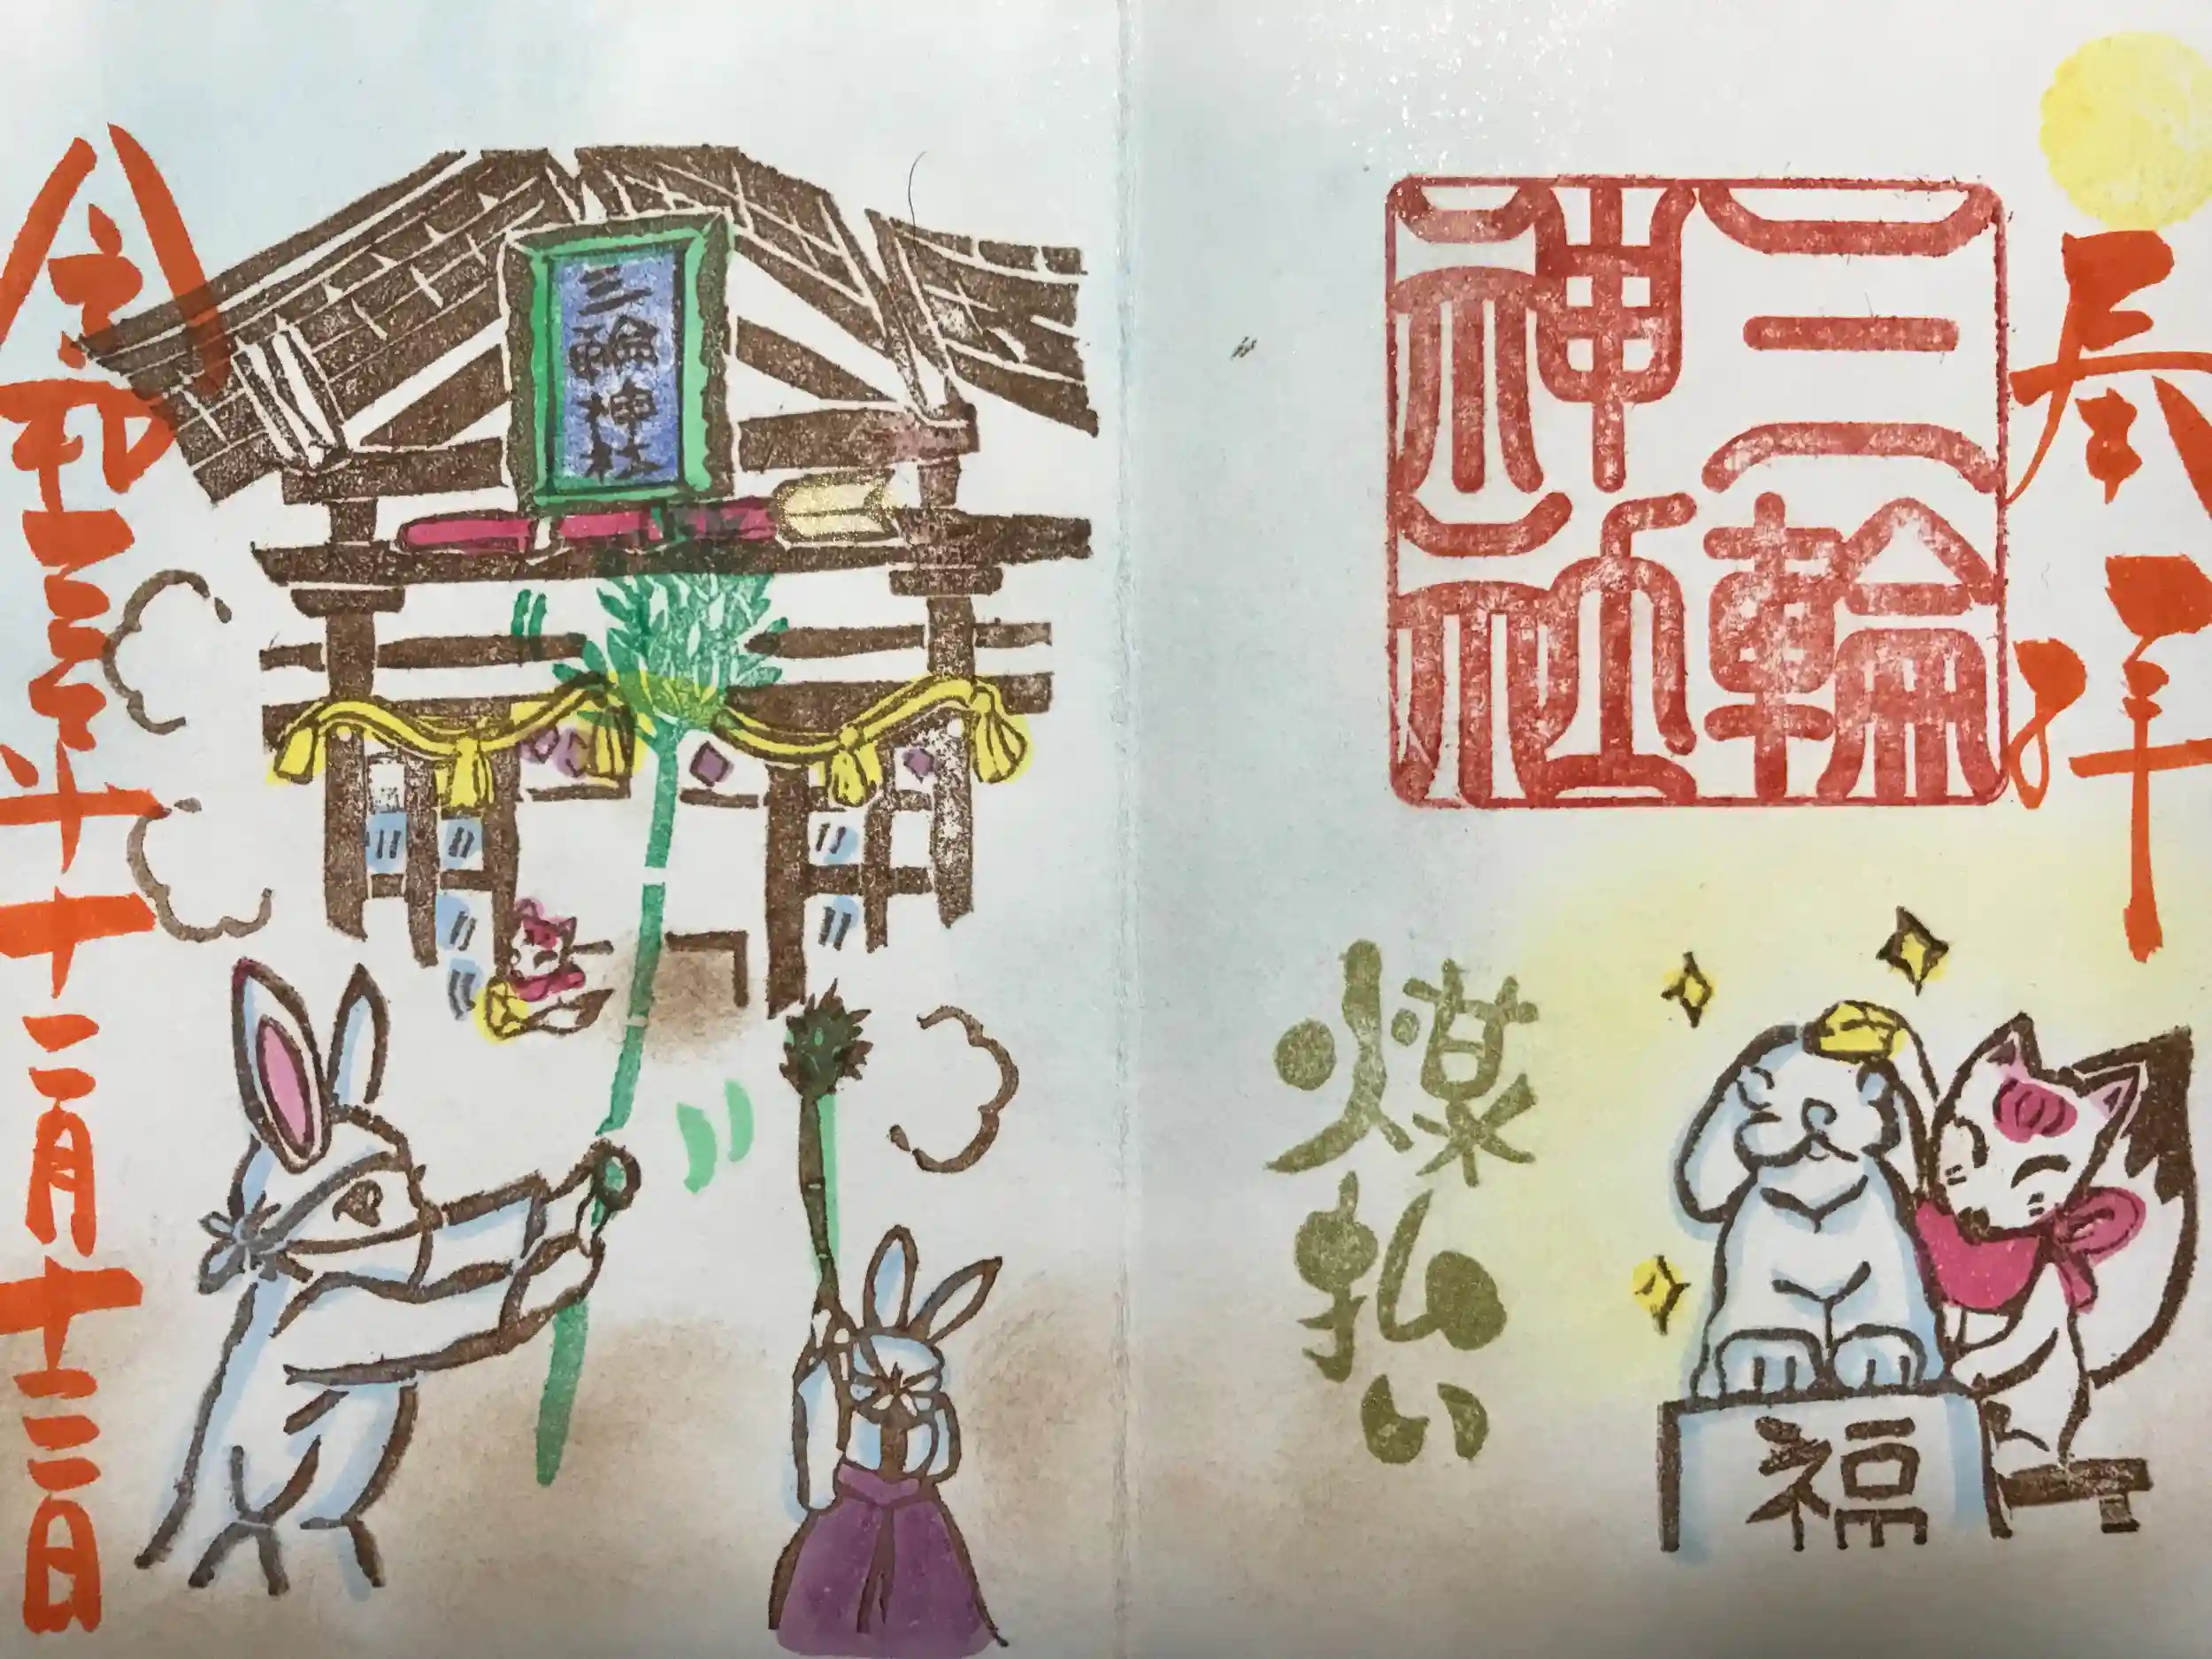 奉拝
三輪
神社
福
煤払い
三輪神社
令和三年十二月十三日